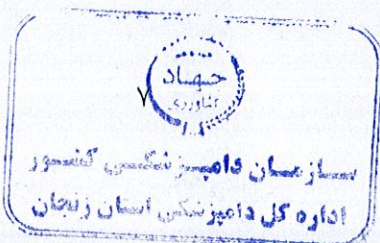 جهاد
کشاورزی
۷
سازمان دامپزشکی کشور
اداره کل دامپزشکی استان زنجان